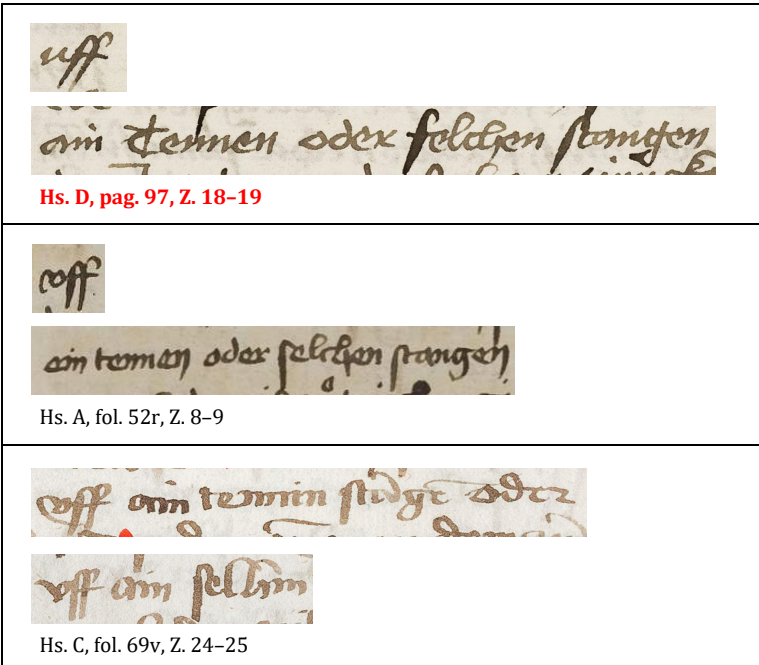 uff
ain Tennen oder felchen stangen
Hs. D, pag. 97, Z. 18–19
vff
ein tennen oder selchen stangen
Hs. A, fol. 52r, Z. 8–9
vff ain tennin oder
vff ain
Hs. C, fol. 69v, Z. 24–25